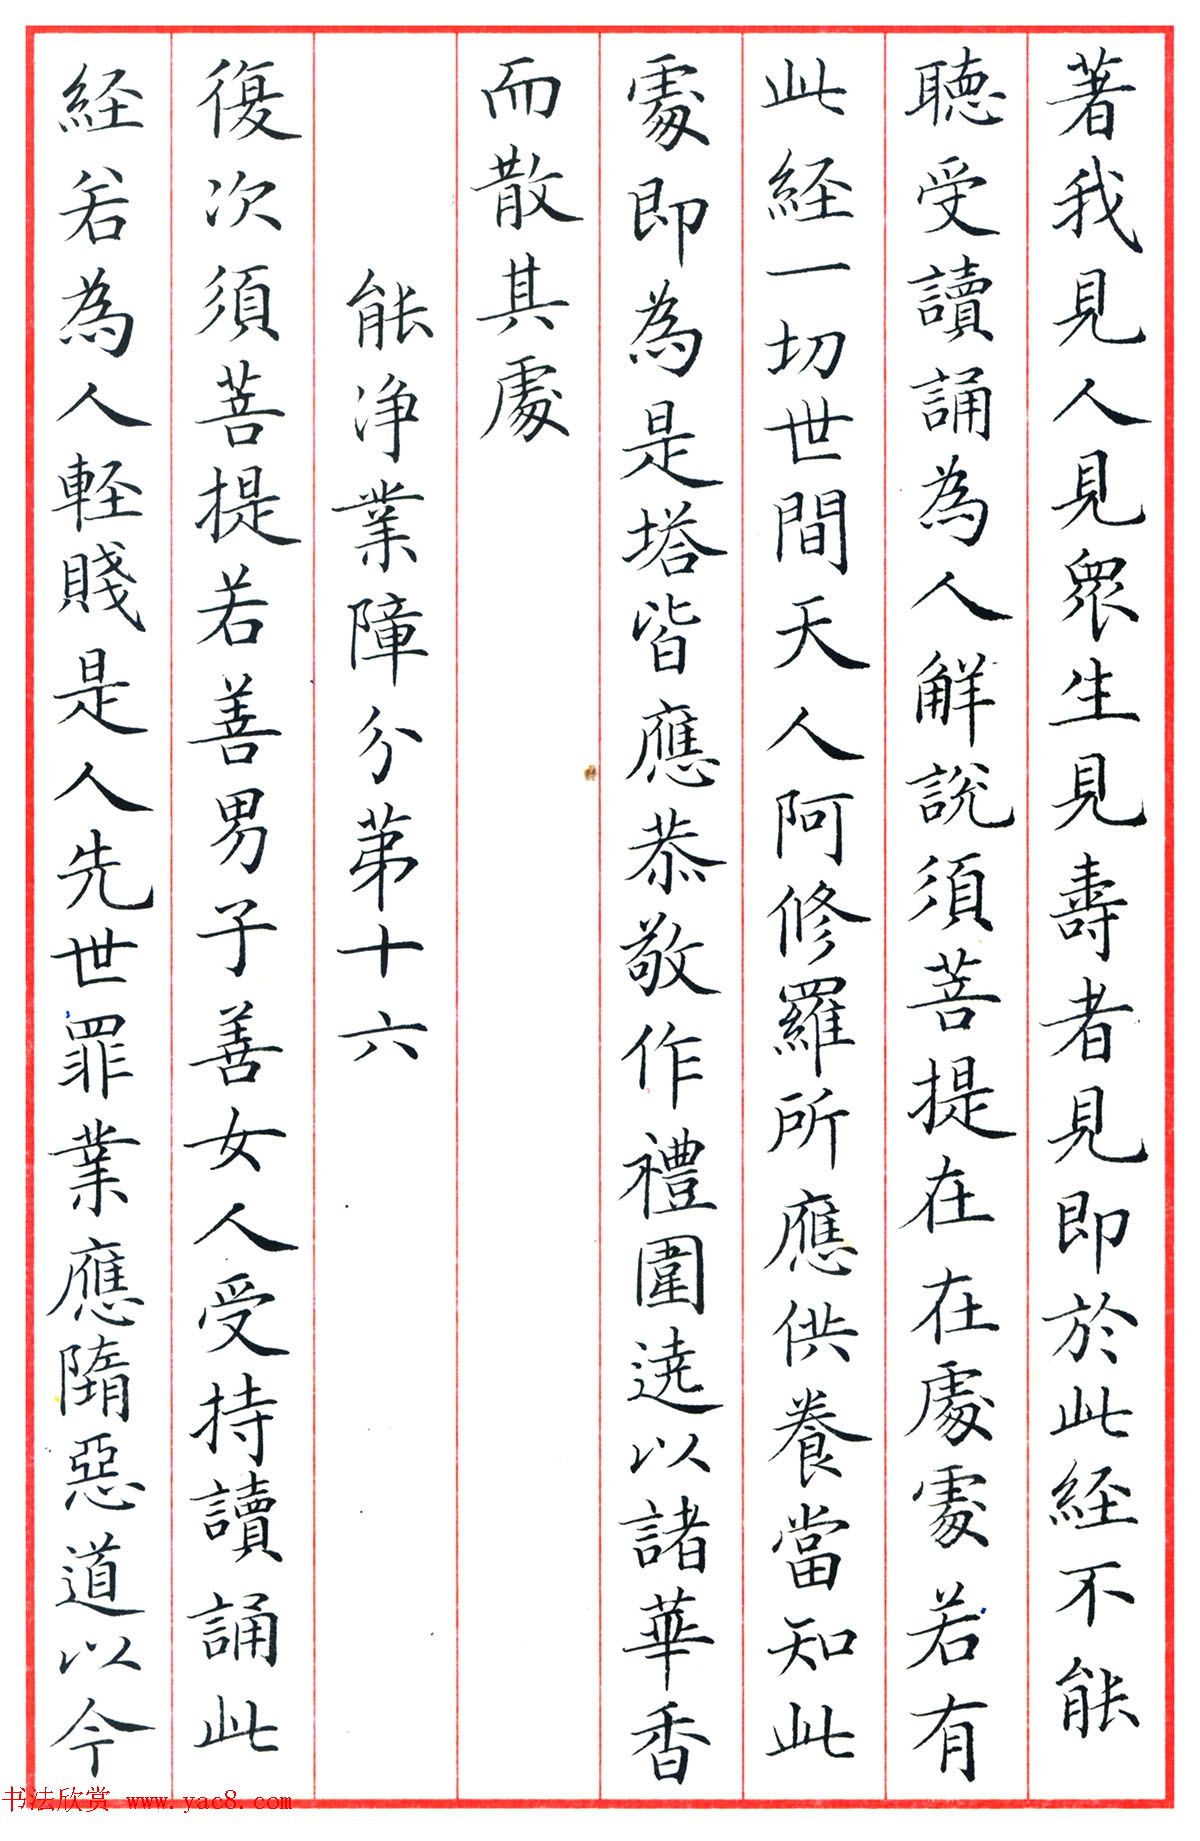 著我見人見眾生見壽者見即於此経不能
聽受讀誦為人解説須菩提在在處處若有
此経一切世間天人阿修羅所應供養當知此
處即為是塔皆應恭敬作禮圍遶以諸華香
而散其處
能净業障分苐十六
復次須菩提若善男子善女人受持讀誦此
経若為人軽賤是人先世罪業應隋惡道以今
书法欣赏 www.yac8.com